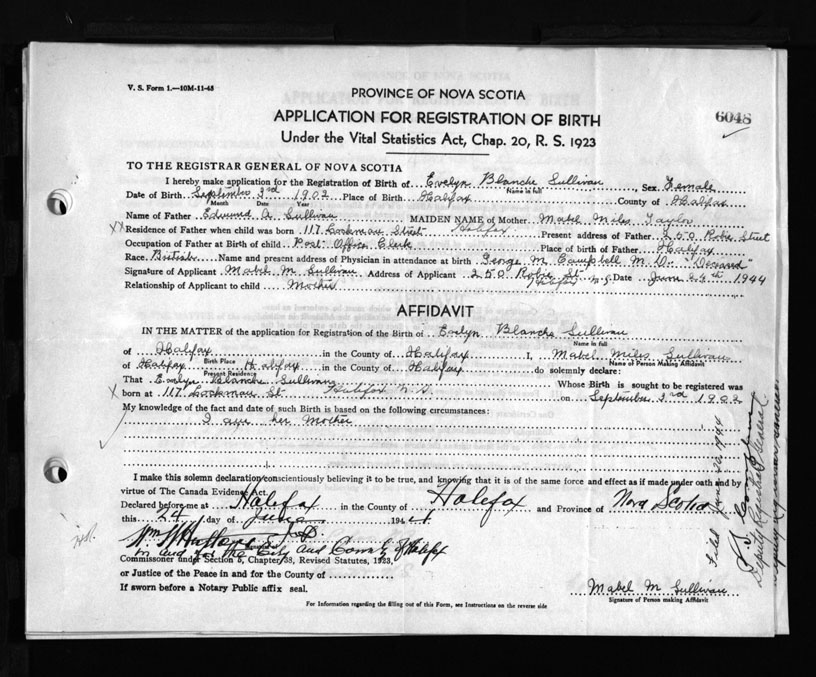 V. S. Form 1.—10M-11-43
PROVINCE OF NOVA SCOTIA
APPLICATION FOR REGISTRATION OF BIRTH
6048
Under the Vital Statistics Act, Chap. 20, R. S. 1923
TO THE REGISTRAR GENERAL OF NOVA SCOTIA
I hereby make application for the Registration of Birth of Evelyn Blanche Sullivan, Sex Female
Name in full
Date of Birth September 3rd 1902 Place of Birth Halifax County of Halifax
Month Date Year
Name of Father Edmund A. Sullivan MAIDEN NAME of Mother Mabel Miles Taylor
XX Residence of Father when child was born 117 Lockman Street Halifax Present address of Father 250 Robie Street
Occupation of Father at Birth of child Post Office Clerk Place of Birth of Father Halifax
Race British Name and present address of Physician in attendance at birth George M. Campbell M. D. "Deceased"
Signature of Applicant Mabel M Sullivan Address of Applicant 250 Robie St Halifax N.S. Date June 24th 1944
Relationship of Applicant to child Mother
AFFIDAVIT
IN THE MATTER of the application for Registration of the Birth of Evelyn Blanche Sullivan
Name in full
of Halifax in the County of Halifax I, Mabel Miles Sullivan
Birth Place Name of Person Making Affidavit
of Halifax Halifax in the County of Halifax do solemnly declare:
Present Residence
That Evelyn Blanche Sullivan Whose Birth is sought to be registered was
X born at 117 Lockman St Halifax N.S. on September 3rd 1902
My knowledge of the fact and date of such Birth is based on the following circumstances:
I am her Mother
I make this solemn declaration conscientiously believing it to be true, and knowing that it is of the same force and effect as if made under oath and by
virtue of The Canada Evidence Act.
Declared before me at Halifax in the County of Halifax and Province of Nova Scotia
this 24 day of June 1944
in and for the City and County of Halifax
Commissioner under Section 5, Chapter 38, Revised Statutes, 1923,
or Justice of the Peace in and for the County of
If sworn before a Notary Public affix seal.
Mabel M Sullivan
Signature of Person making Affidavit
For Information regarding the filling out of this Form, see Instructions on the reverse side
Filed June 26 1944
Deputy Registrar General